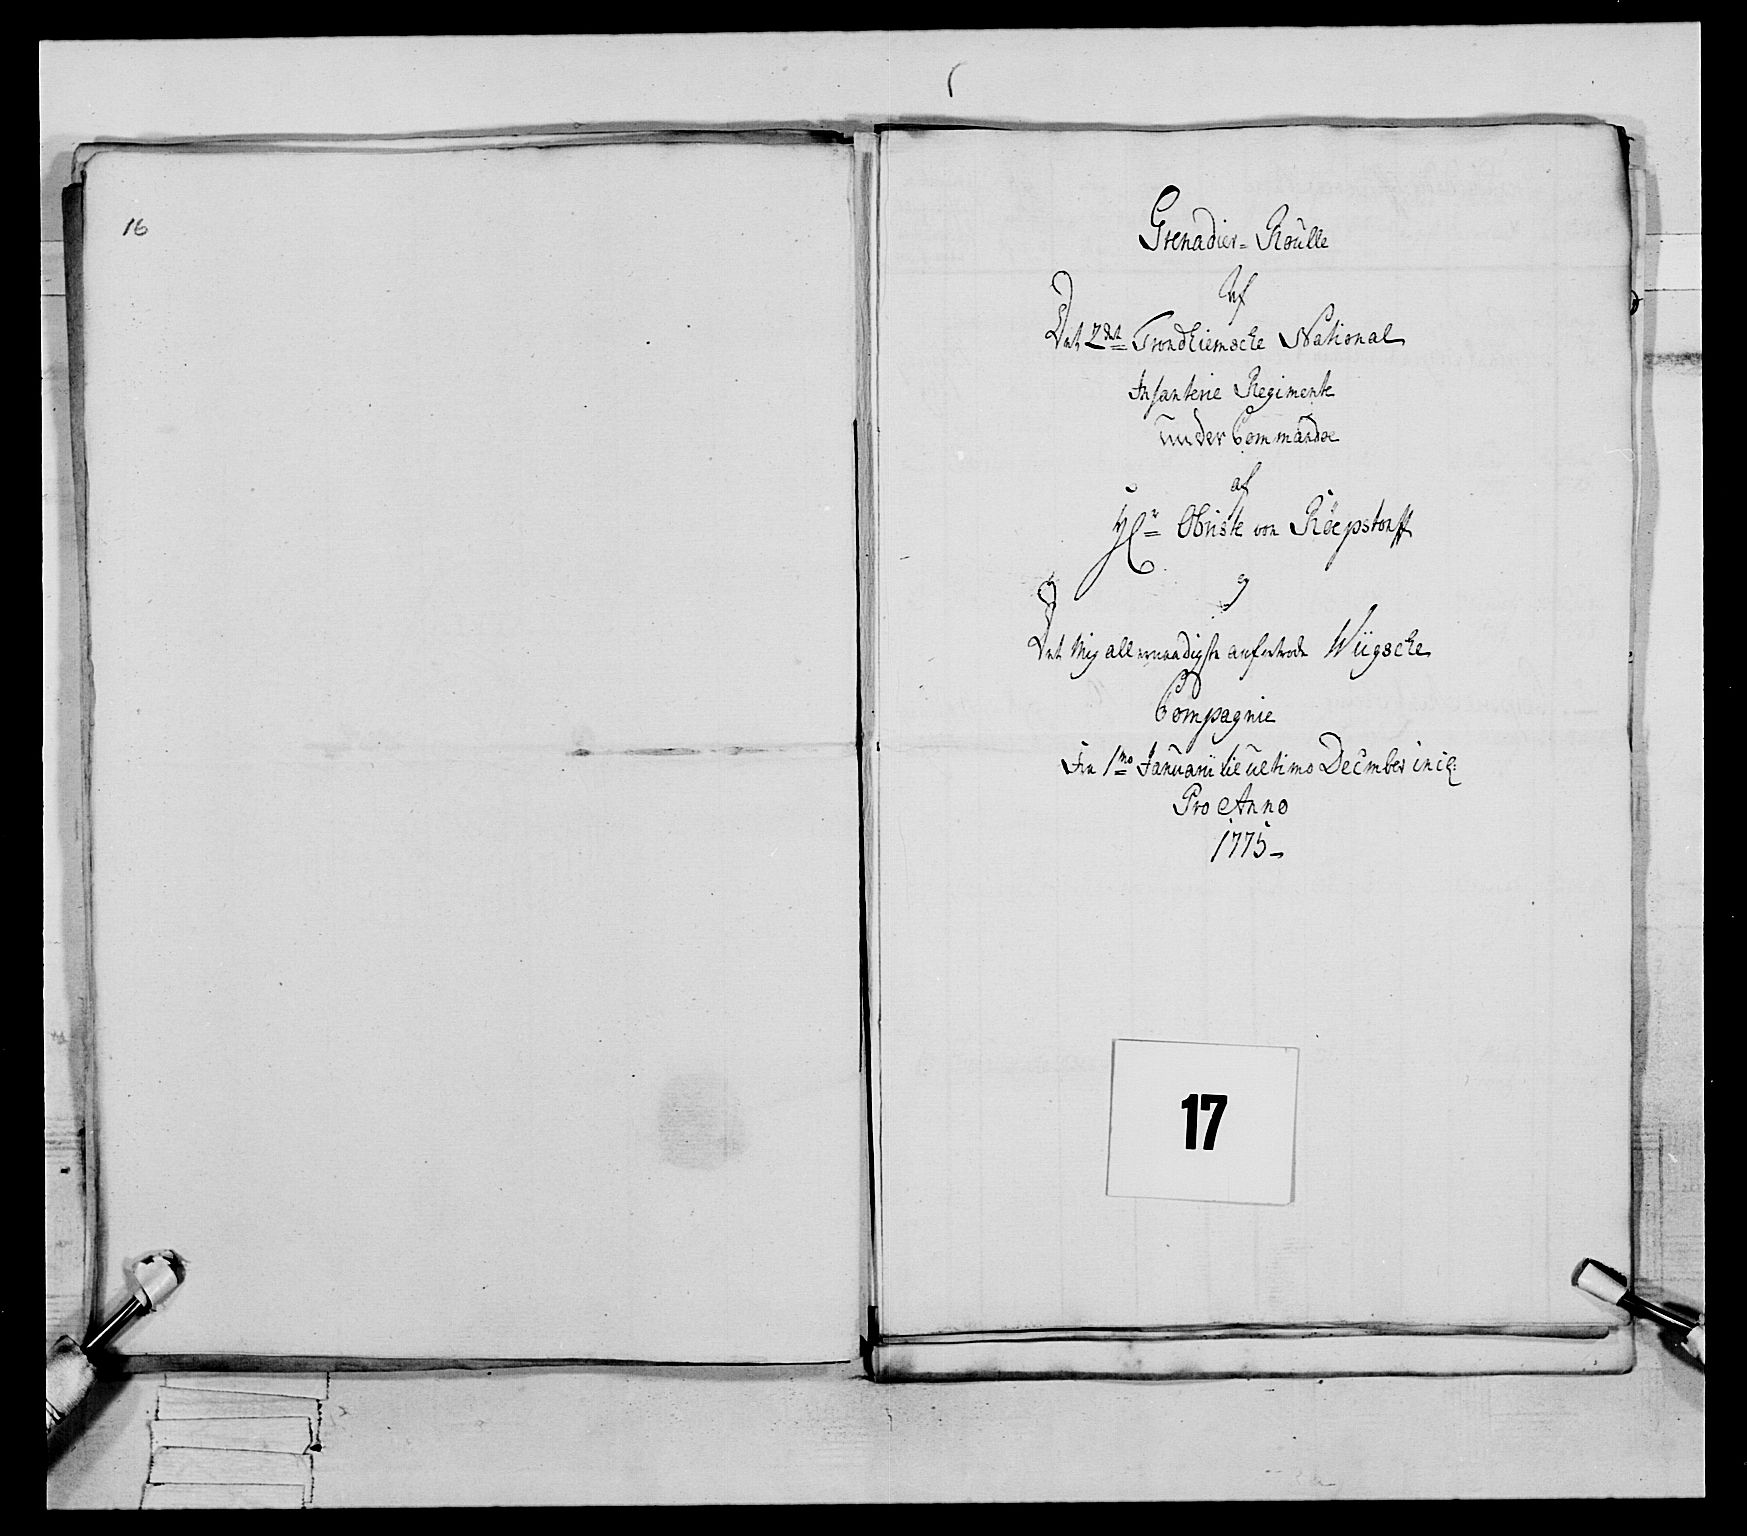 16
Grenadier-Roülle
Af
Det 2det Trondhiemsche National
Infanterie Regimente
ünder Commandoe
af
Hr Obriste von Röepstorff
og
Det Mig allernaadigste anfortrode Wügsche
Compagnie
Fra 1mo Januarii til ultimo Decmber incl:
Pro Anno
1775
17